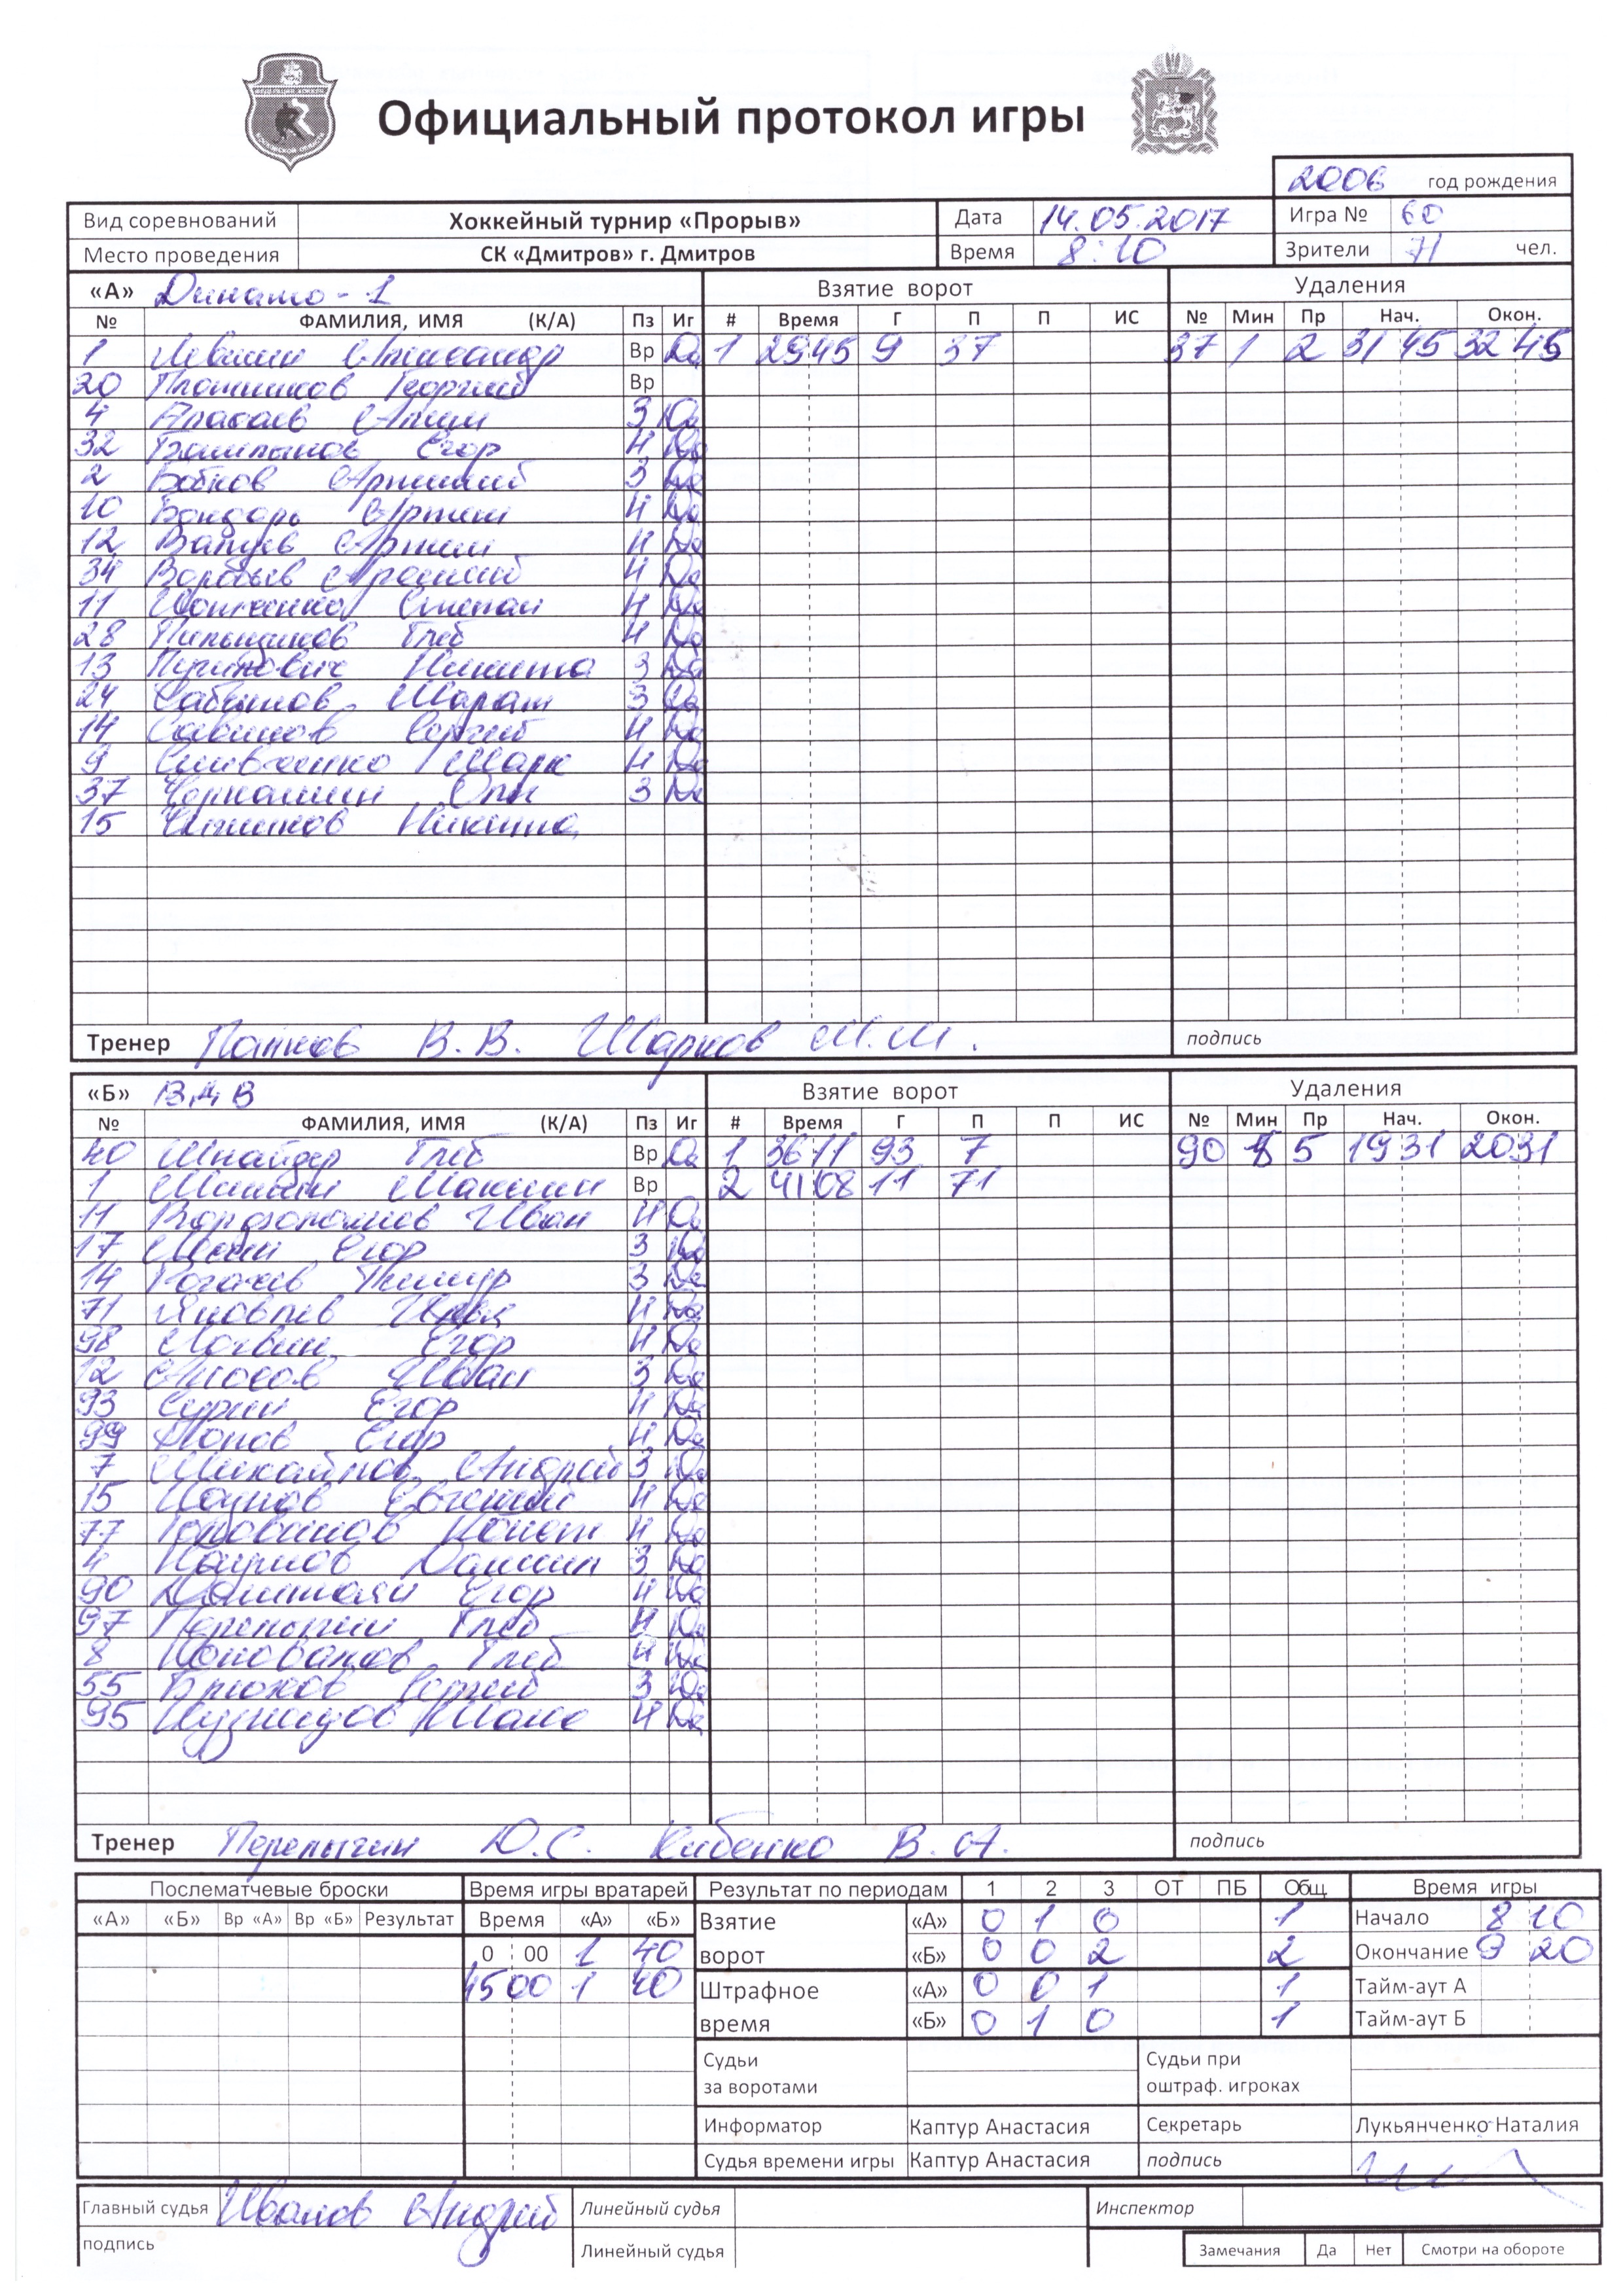 Официальный протокол игры
2006 год рождения
Вид соревнований Хоккейный турнир «Прорыв» Дата 14.05.2017 Игра № 60
Место проведения СК «Дмитров» г. Дмитров Время 8:10 Зрители 71 чел.
«А» Динамо-1 Взятие ворот Удаления
№ ФАМИЛИЯ, ИМЯ (К/А) Пз Иг # Время Г П П ИС № Мин Пр Нач. Окон.
1 Александр Вр Да 1 29 45 9 37 37 1 2 31 45 32 45
20 Плотников Георгий Вр
4 З Да
32 Егор Н Да
2 Бобков З Да
10 Бондарь Артем Н Да
12 Артем Н Да
34 Воробьев Н Да
11 Степан Н Да
28 Пильщиков Глеб Н Да
13 Никита З Да
24 Марат З Да
14 Савинов Сергей Н Да
9 Марк Н Да
37 З Да
15 Никита
Тренер В.В. Шарков М.М. подпись
«Б» ВДВ Взятие ворот Удаления
№ ФАМИЛИЯ, ИМЯ (К/А) Пз Иг # Время Г П П ИС № Мин Пр Нач. Окон.
40 Шнайдер Глеб Вр Да 1 36 11 93 7 90 5 19 31 20 31
1 Максим Вр 2 41 08 11 71
11 Иван Н Да
17 Егор З Да
14 Рогачев Тимур З Да
71 Яковлев Илья Н Да
98 Логвин Егор Н Да
12 Иван З Да
93 Сурин Егор Н Да
99 Попов Егор Н Да
7 Михайлов Андрей З Да
15 Евгений Н Да
77 Голованов Н Да
4 З Да
90 Егор Н Да
97 Перелыгин Глеб Н Да
8 Коновалов Глеб Н Да
55 Брюхов Сергей З Да
95 Кузнецов Н Да
Тренер Перелыгин Ю.С. Кибенко В.А. подпись
Послематчевые броски Время игры вратарей Результат по периодам 1 2 3 ОТ ПБ Общ Время игры
«А» «Б» Вр «А» Вр «Б» Результат Время «А» «Б» Взятие «А» 0 1 0 1 Начало 8 10
0 00 1 40 ворот «Б» 0 0 2 2 Окончание 9 20
4500 1 40 Штрафное «А» 0 0 1 1 Тайм-аут А
время «Б» 0 1 0 1 Тайм-аут Б
Судьи Судьи при
за воротами оштраф. игроках
Информатор Каптур Анастасия Секретарь Лукьянченко Наталия
Судья времени игры Каптур Анастасия подпись
Главный судья Иванов Андрей Линейный судья Инспектор
подпись Линейный судья Замечания Да Нет Смотри на обороте